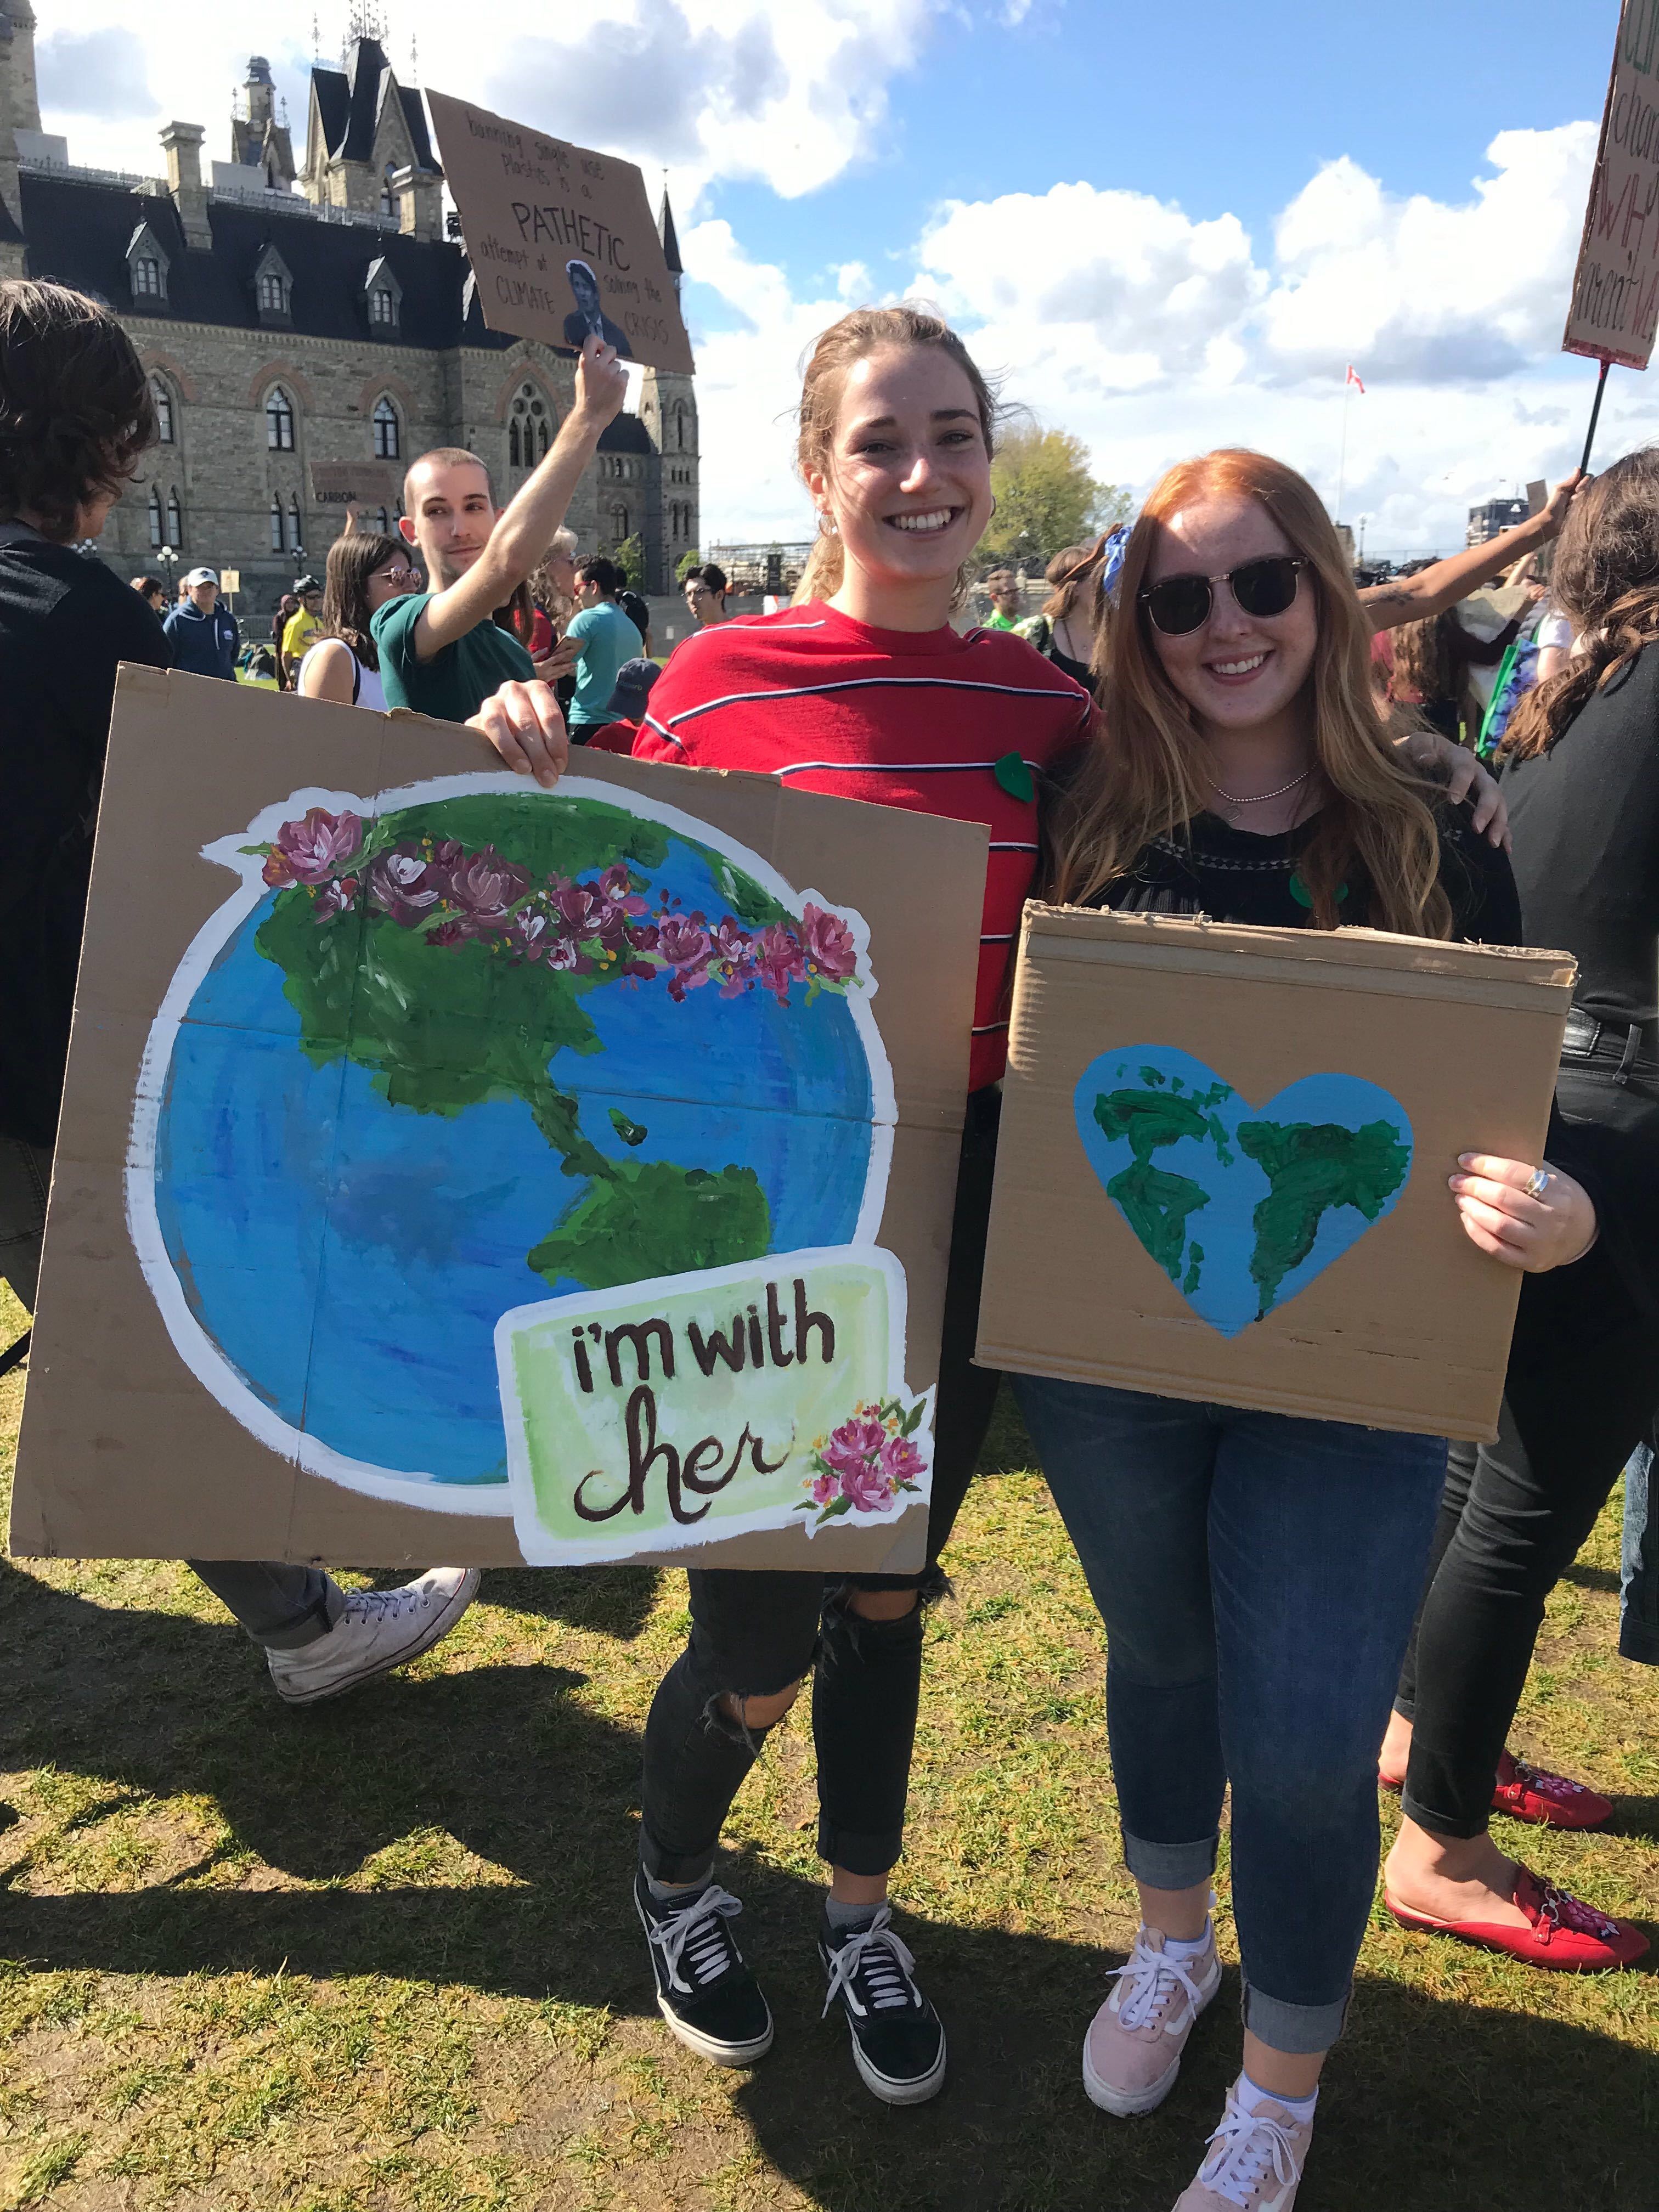 banning single use
plastics is a
PATHETIC
attempt at solving the
CLIMATE CRISIS
CARBON
i'm with
her
aren't